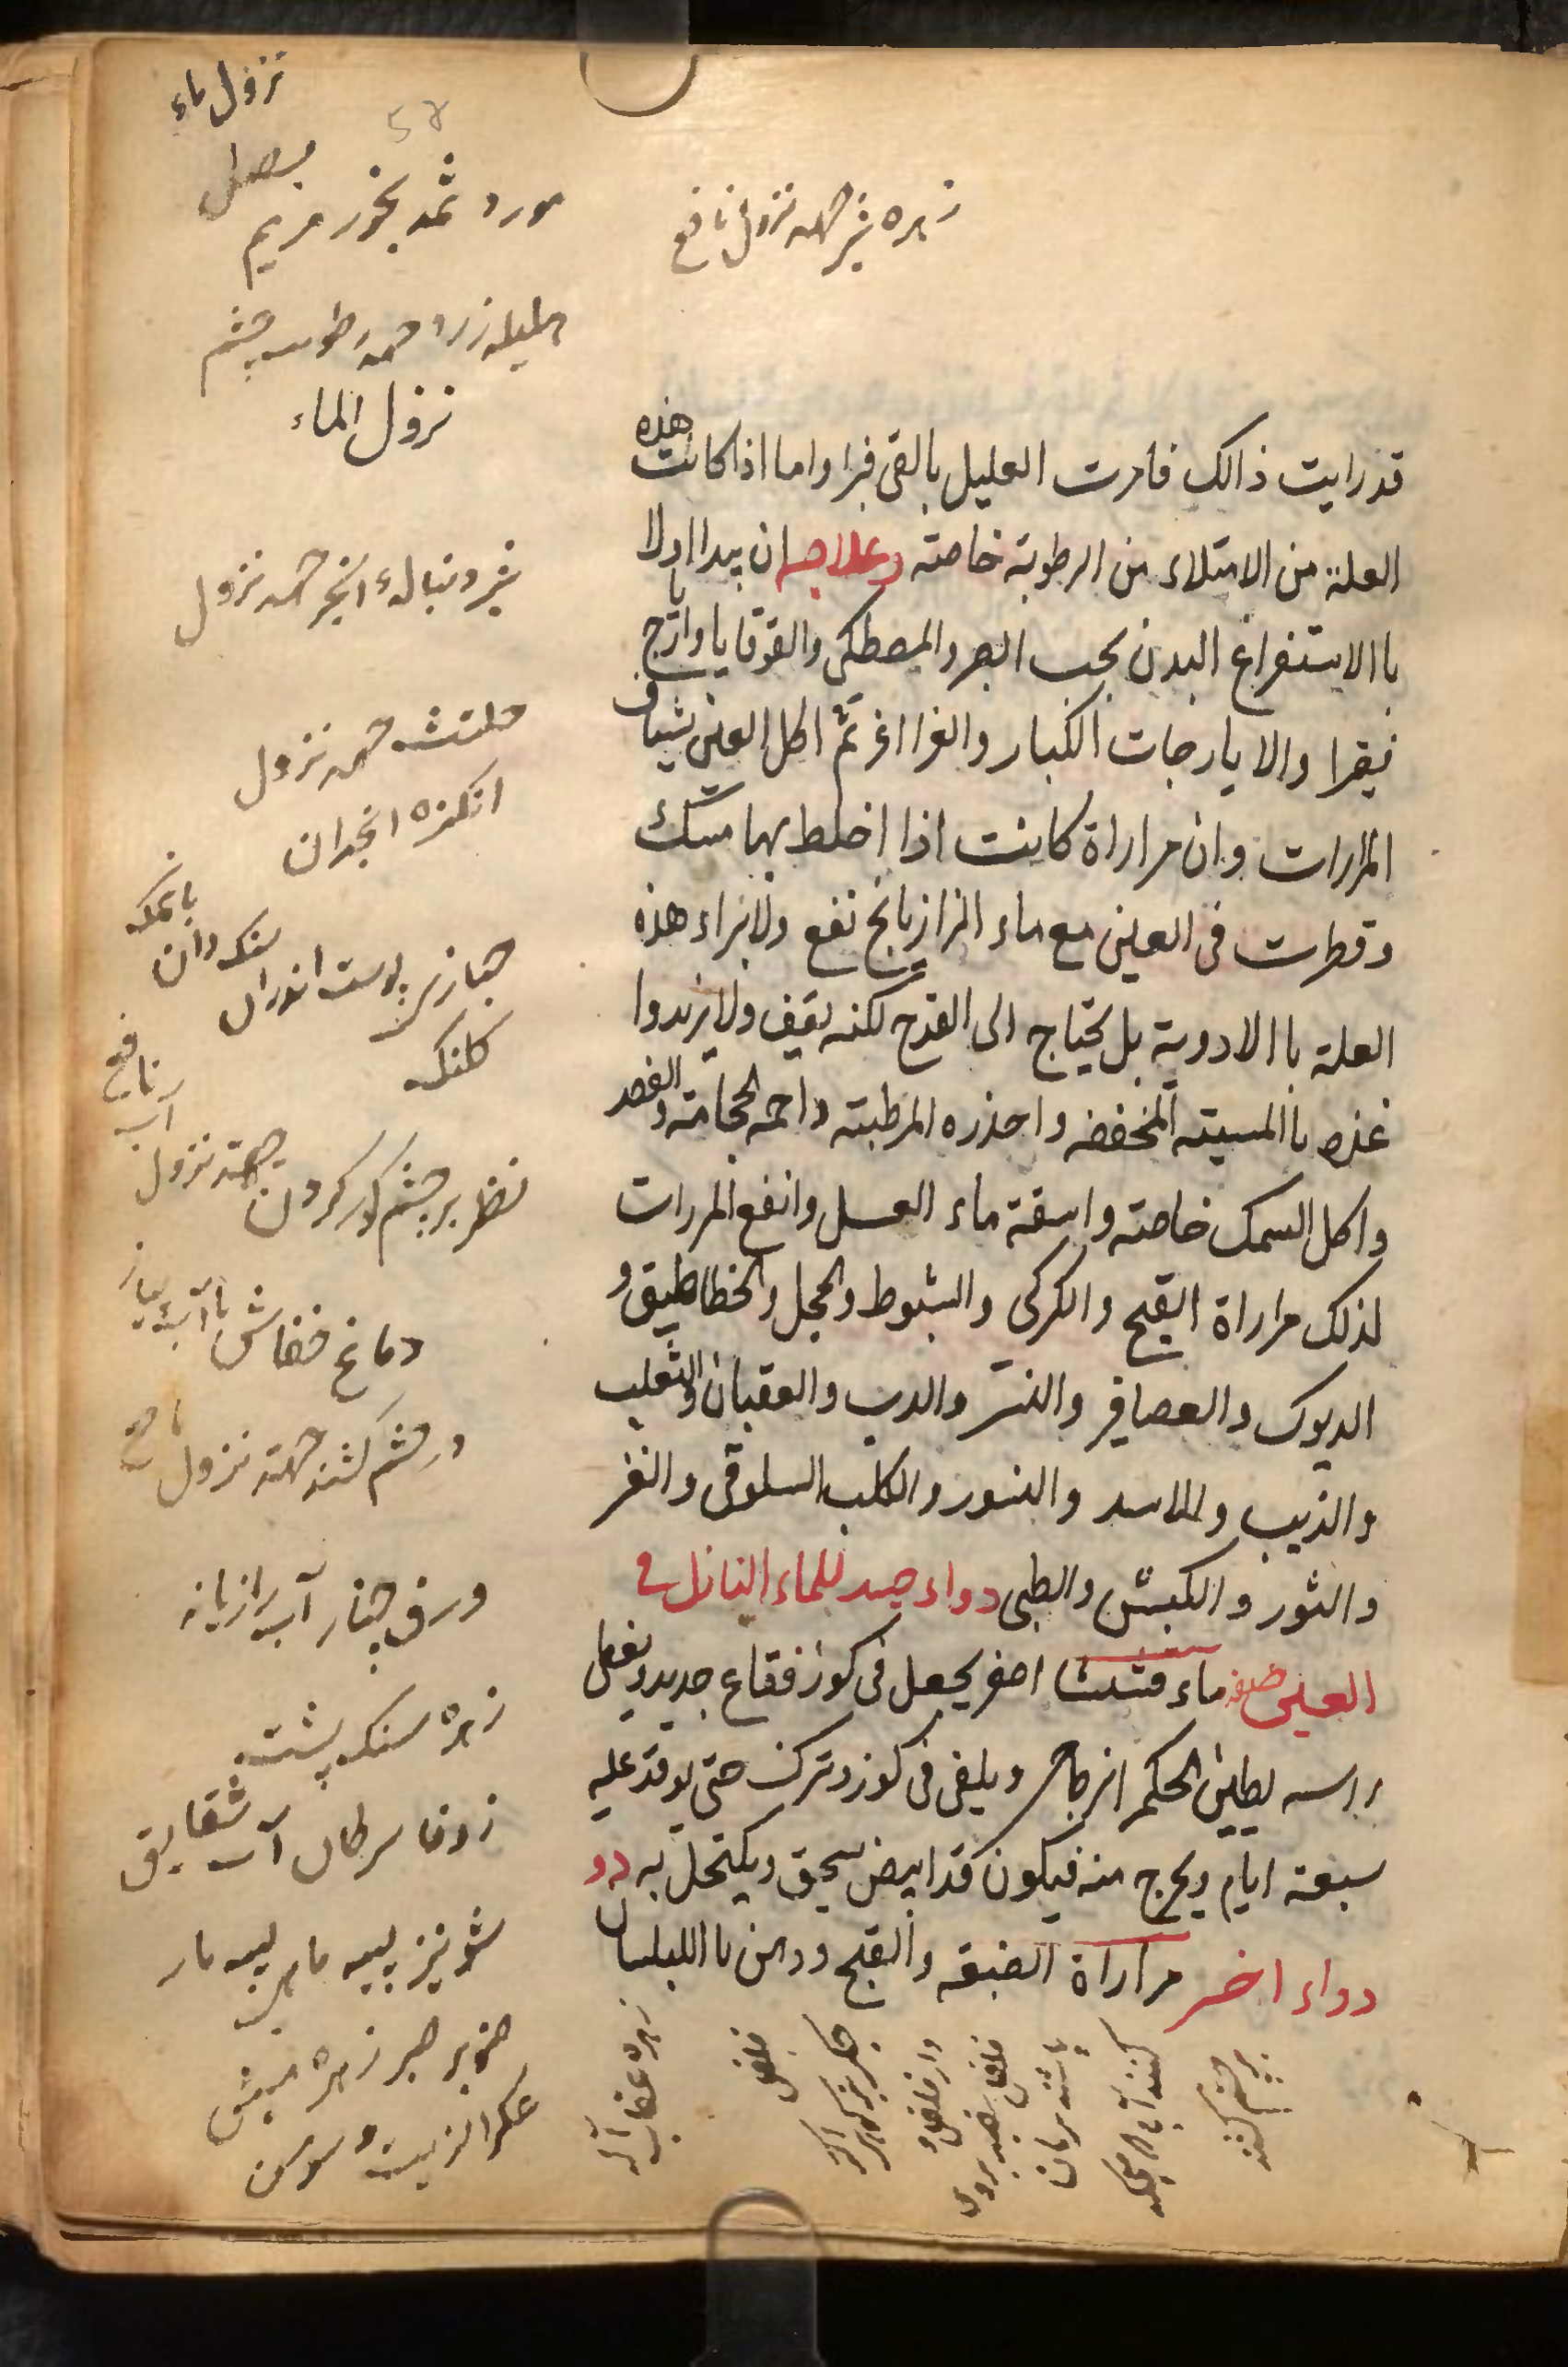 نزول ماء
زهره شیر جهة نزول نافع
مورد ثمد بخور مریم
هلیله زرد جهة رطوبت چشم
نزول الماء
قد رايت ذالك فامرت العليل بالقى فبرا واما اذا كانت هذه
العلة من الامتلاء من الرطوبة خاصته وعلاجه ان يبدا اولا
باالاستفراغ البدن بحب الصبر والمصطكى والقوقايا وايارج
فيقرا والايارجات الكبار والغراغر ثم اكل العين بشياف
المرارات وان مراراة كانت اذا اخلط بها مسك
وقطرت فى العين مع ماء الرازيانج نفع ولا يراء هذه
العلة باالادوية بل يحتاج الى القدح لكنه يقف ولا يزيدوا
غذه باالمسيته المخففه واحذره المرطبته واحمه الحجامته والفصد
واكل السمك خاصته واسقة ماء العسل وانفع المررات
لذلك مراراة القبج والكركى والشبوط والحجل والخطاطيق و
الديوك والعصافير والنسر والدب والعقبان والثعلب
والذيب والاسد والنسور والكلب السلوقى والنمر
والثور والكبش والظبى دواء جيد للماء النازل فى
العين صفه ماء قشيشا اصفر يجعل فى كوز فقاع جديد ويغل
راسه بطين الحكم الزجاج ويلقى فى كوز وترك حتى يوقد عليه
سبعة ايام ويخرج منه فيكون قد ابيض يسحق ويكتحل به دو
دواء اخر مراراة الضبعه والقبج ودهن باالبلسان
شیر دنباله انجیر جهة نزول
حلتیث جهة نزول
انکزه انجدان
پوست اندرون سنکدان
با نمک
کلنک
نظر بر چشم کور کردن جهته نزول
آب نافع
دماغ خفاش با آب پیاز
در چشم کشند جهته نزول نافع
ورق چنار آب رازیانه
زهره سنک پشت
زوفا سرطان آب شقایق
شونیز پیه مار
صنوبر صبر زهره میش
عکر الزیت و سوسن
زهره عقاب
فلفل
دار فلفل و
بر چشم کشند